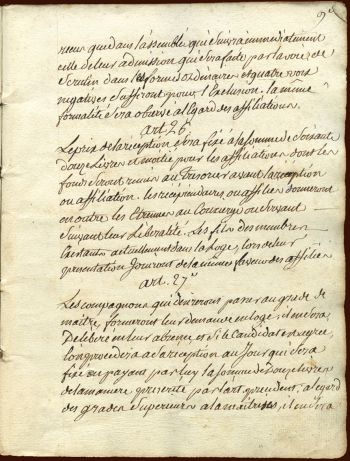 9e
rieur que dans l'assemblée qui suivra immediatement
celle de leur admission qui sera faite par la voie de
scrutin dans la forme ordinaire et quatre voix
negatives suffiront pour l'exclusion. la meme
formalité sera observé a l'Egard des affiliations.
art. 26e
Le prix de la reception sera fixé a la somme de soixante
douze Livres et moitié pour les affiliations dont les
fonds seront remis au Tresorier avant la reception
ou affiliation. les recipiendaires ou affiliés donneront
en outre les Etrennes au Concierge ou Servant
suivant leur Liberalité. Les fils des membres
Existants actuellement dans la Loge, lors de leur
presentation Jouiront de la meme faveur des affiliés
art. 27e
Les compagnons qui desireront passer au grade de
maitre, formeront leur demande en loge, il en sera
Deliberé en leur absence et Si le Candidat est agréé
l'on procedera a la reception au Jour qui Sera
fixé en payant par luy la somme de Douze Livres
de la maniere prescrite par l'art. precedent, a l'egard
des grades Superieurs a la maitrise, il en sera